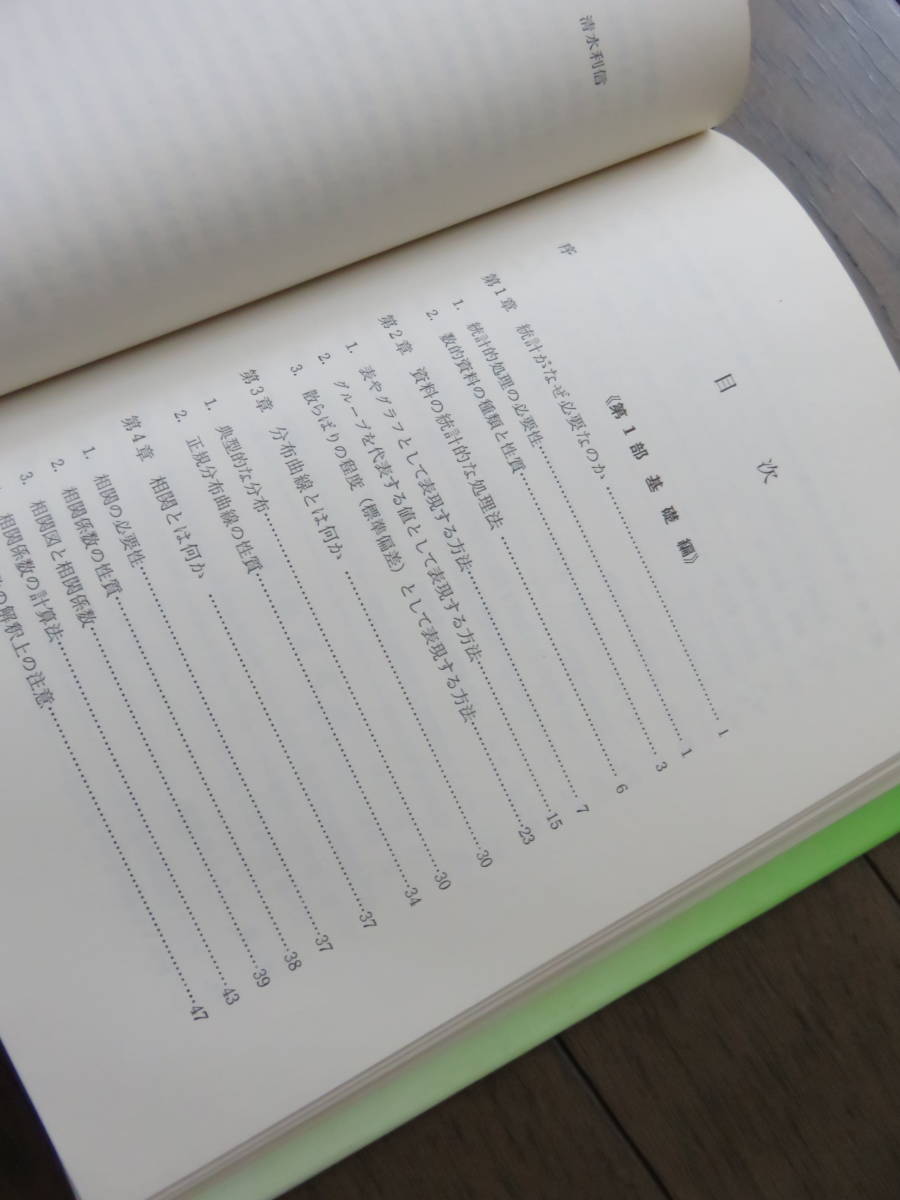 清水利信
目次
序
《第1部 基礎編》
第1章 統計がなぜ必要なのか……1
1. 統計的処理の必要性……1
2. 数的資料の種類と性質……3
第2章 資料の統計的な処理法……6
1. 表やグラフとして表現する方法……7
2. グループを代表する値として表現する方法……15
3. 散らばりの程度（標準偏差）として表現する方法……23
第3章 分布曲線とは何か……30
1. 典型的な分布……30
2. 正規分布曲線の性質……34
第4章 相関とは何か……37
1. 相関の必要性……37
2. 相関係数の性質……38
3. 相関図と相関係数……39
相関係数の計算法……43
の解釈上の注意……47